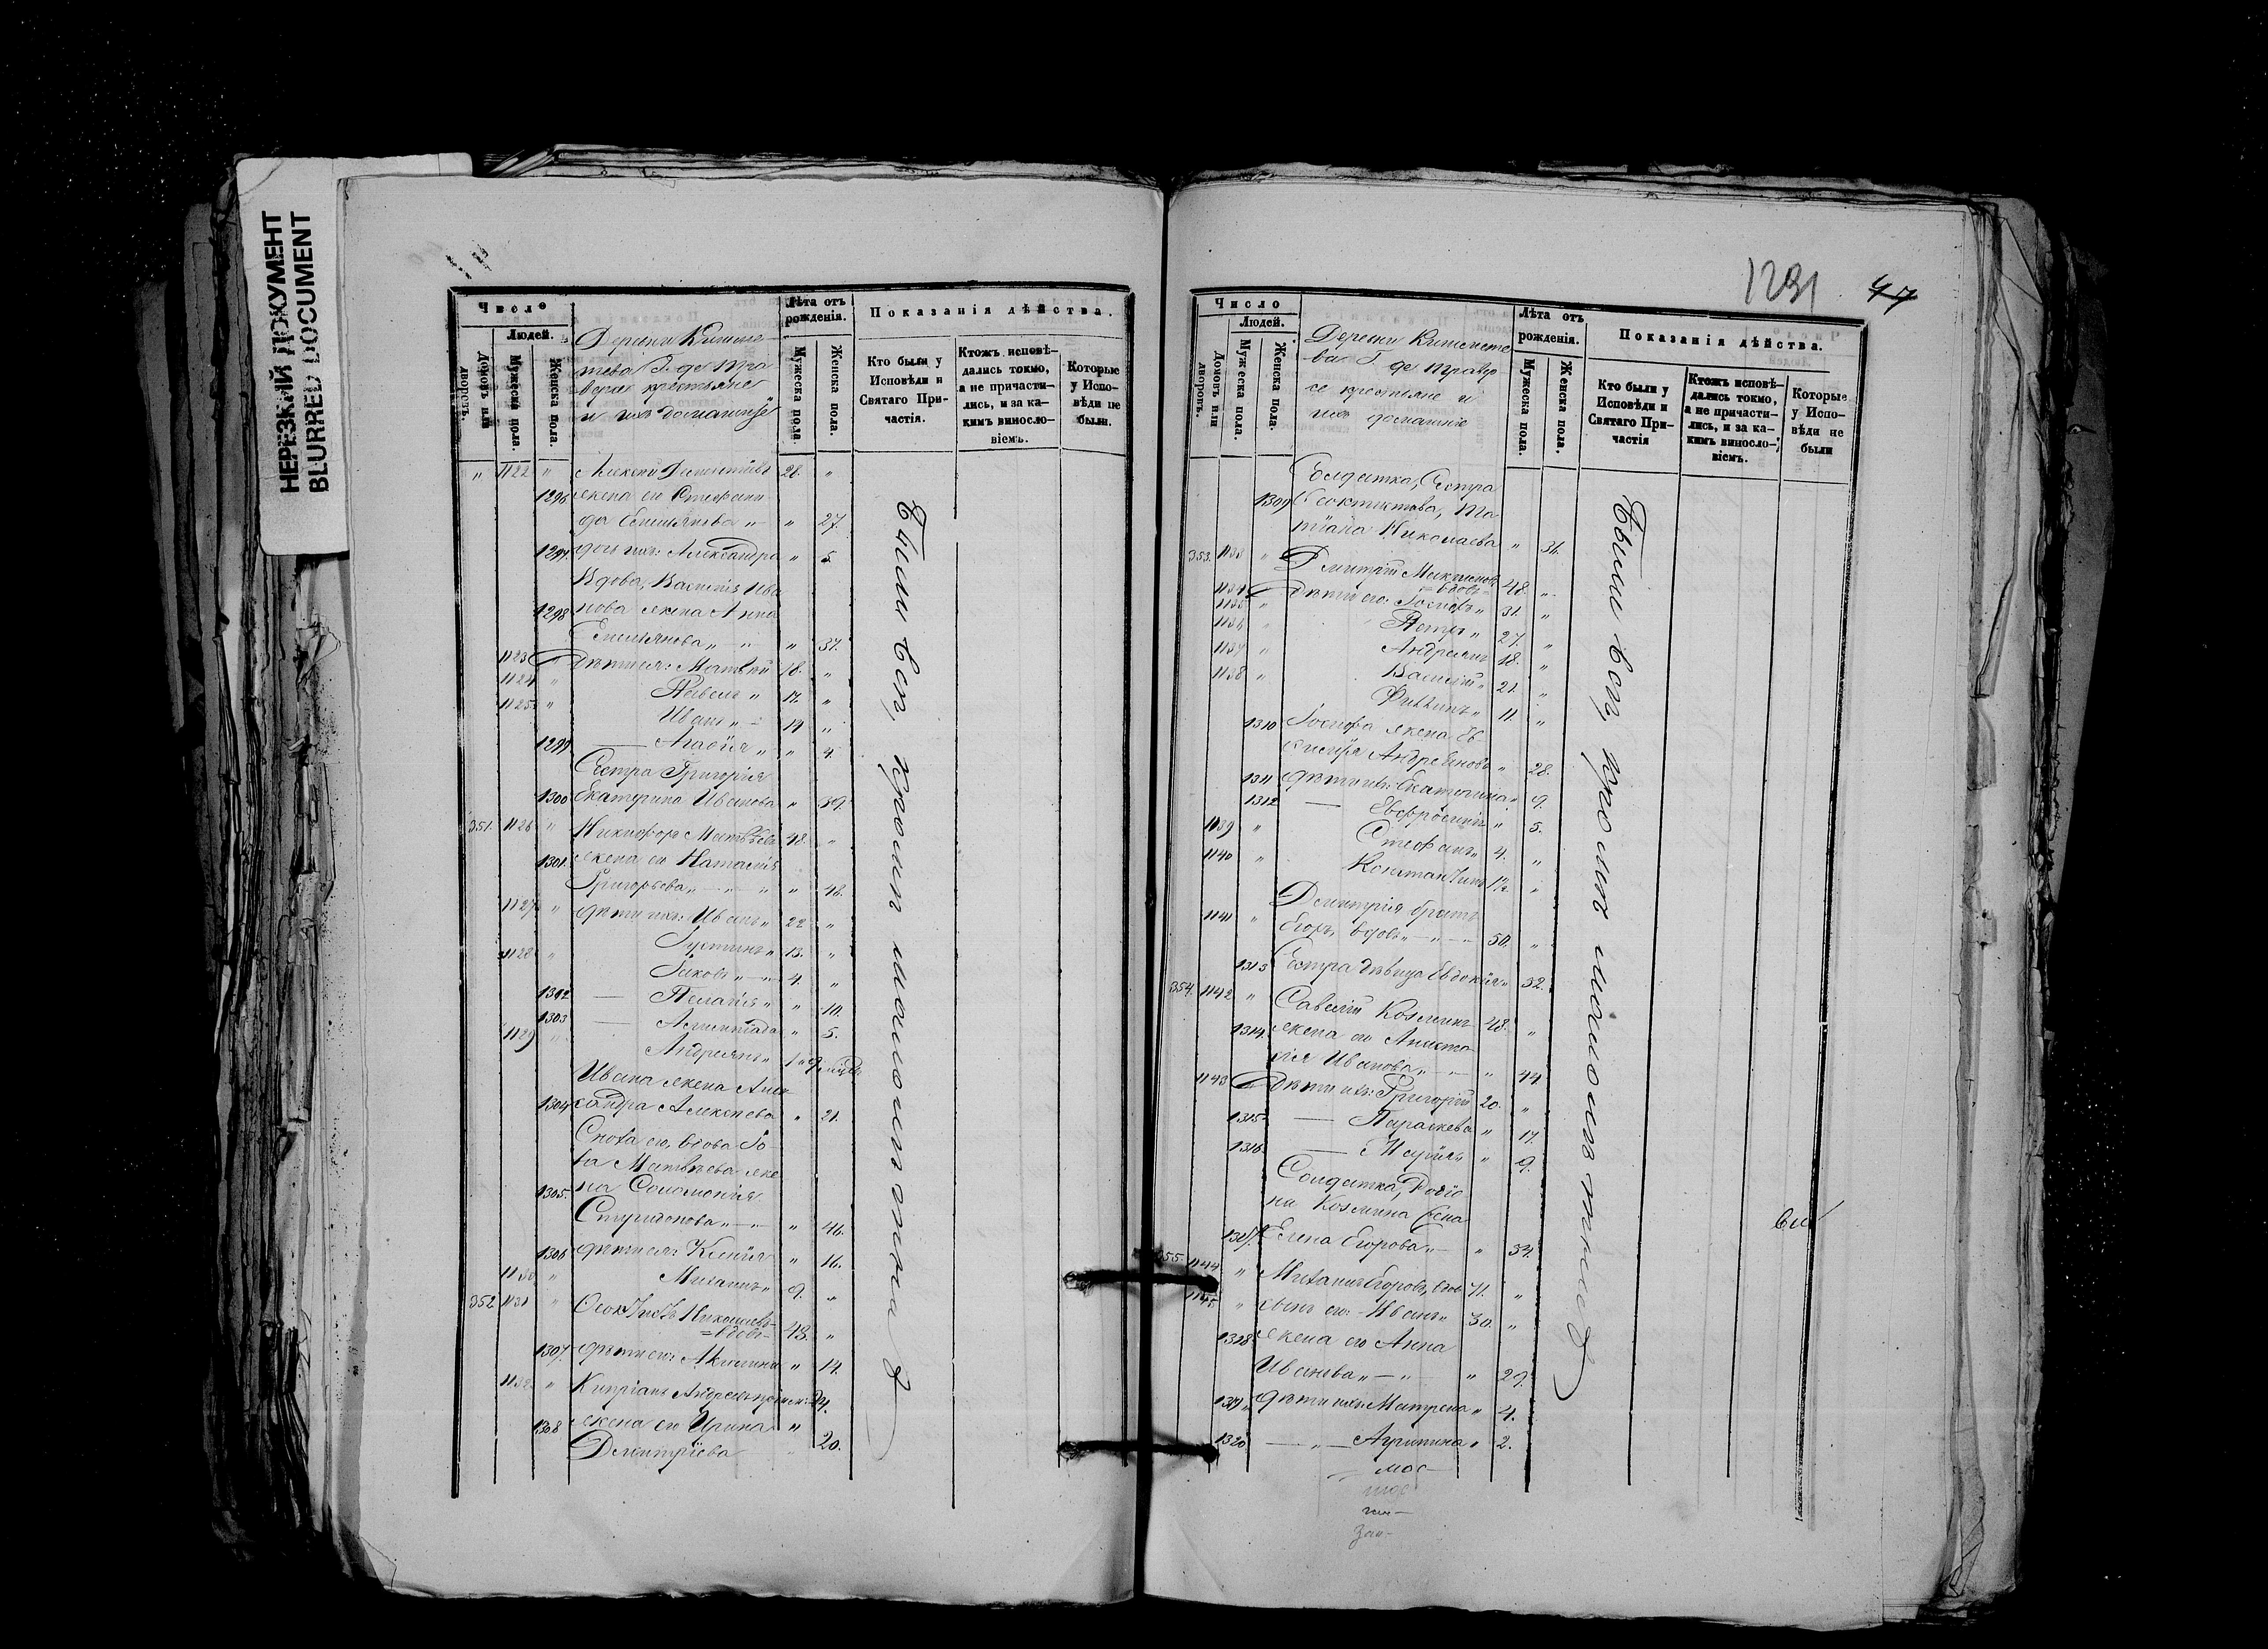 НЕРЕЗКИЙ ДОКУМЕНТ
BLURRED DOCUMENT
Число
Людей.
Домовъ или дворовъ.
Мужеска пола.
Женска пола.
Деревни
крестьяне
и ихъ домашніе
Лѣта отъ рожденія.
Мужеска пола.
Женска пола.
Показанія дѣйства.
Кто были у Исповѣди и Святаго Причастія.
Ктожъ исповѣдались токмо, а не причастились, и за какимъ винословіемъ.
Которые у Исповѣди не были.
" 1122 " Алексѣй 28. "
1296 жена его Степани-
да Емельянова " " 27.
1297. дочь ихъ: Александра " 5
Вдова, Василія Ива
1298 нова жена Анна
Емельянова " " 37.
1123 " Дѣти ея: Матвѣй 18. "
1124 " Павелъ " 17. "
1125 " Иванъ " 14 "
1299 — Агафія " " 4.
Сестра Григорія
1300 Екатерина Иванова " 39.
351. 1126 " Никифоръ Матвѣевъ 48. "
1301. жена его Наталія
Григорьева " " 48.
1127 " дѣти ихъ: Иванъ " 22 "
Іустинъ " 13. "
1128 " Іаковъ " 4. "
1302 — Пелагія " " 10.
1303 — " 5.
1129 " Андреянъ "
Ивана жена Алек
1304 сандра Алексеева " 21.
Сноха его, вдова Іо
ва Матвѣева же
1305. на Соломонія
Спиридонова " " 46.
1306 дѣти ея: Ксенія " 16.
1130 " Михаилъ " 9. "
352 1131 " Ѳеоктистъ Николаевъ
вдовъ 48. "
1307. дѣти его: Акилина " 14.
1132. " Кипріанъ 24.
1308 жена его Ирина "
Дмитріева 20.
Были всѣ, кромѣ малолѣтныхъ
1291 47
Число
Людей.
Домовъ или дворовъ.
Мужеска пола.
Женска пола.
Деревни
крестьяне и
ихъ домашніе
Лѣта отъ рожденія.
Мужеска пола.
Женска пола.
Показанія дѣйства.
Кто были у Исповѣди и Святаго Причастія
Ктожъ исповѣдались токмо, а не причастились, и за какимъ винословіемъ.
Которые у Исповѣди не были
Солдатка, Сестра
1309 Ѳеоктистова, Та
тіана Николаева " 31.
353. 1133 " Дмитрій
вдовъ 48. "
1134 Дѣти его: Іосифъ " 31. "
1135 " Петръ " 27. "
1136 " Андреянъ 18. "
1137 " Василій " 21. "
1138 " Филипъ " 11. "
1310 Іосифа жена Ев
Андреянова " 28.
1311 дѣти ихъ: Екатерина " 9.
1312 — Евфросинія " 5.
1139 " Стефанъ " 4. "
1140 " Константинъ 1½ "
Дмитрія братъ
1141 " Егоръ вдовъ " 50. "
1313 Сестра дѣвица Евдокія " 32.
354. 1142 " Савелій Козминъ 48. "
1314. жена его Анаста
сія Иванова " " 44
1143 " Дѣти ихъ: Григорій 20. "
1315 — Параскева " 17.
1316. — Марія " 9.
Солдатка, Родіо
на Козмина жена
1317. Елена Егорова " " 34.
355. 1144 " Михаилъ Егоровъ, вдов 71. "
1145. " сынъ его: Иванъ " 30. "
1318. жена его Анна
Иванова " " 29.
1319 " дѣти ихъ: Матрена " 4.
1320 — " — Агрипина " 2.
Были всѣ, кромѣ малолѣтныхъ